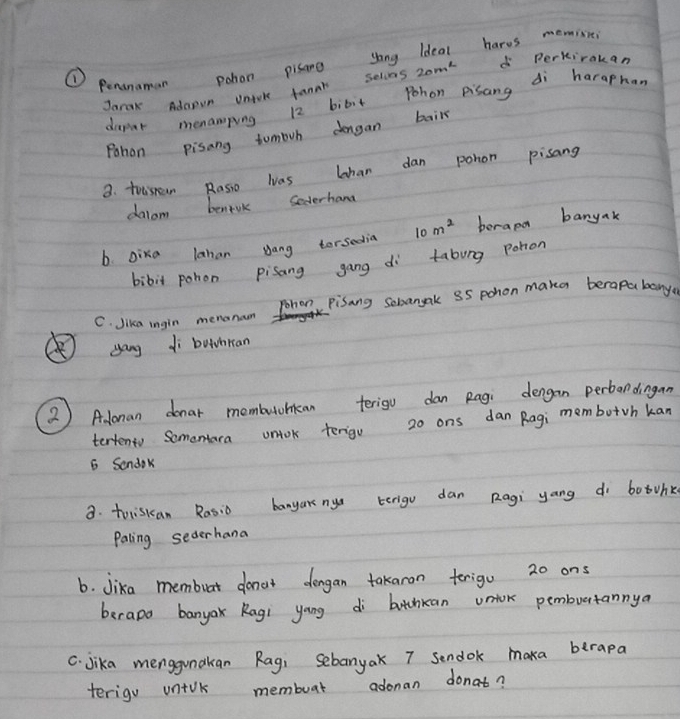 ① Penanaman pohon pisang yang Ideal harus memiski
Jarak Adapun untuk tanah seluas 20m² di Perkirakan
dapat menampung 12 bibit Pohon Pisang di harapkan
Pohon pisang tumbuh dengan baik
a. tuliskan Rasio luas lahan dan pohon pisang
dalam bentuk sederhana
b. Jika lahan yang tersedia 10 m² berapa banyak
bibit pohon pisang yang di tabung pohon
C. Jika ingin menanam pohon pisang sebanyak 35 pohon maka berapa banya
yang di butuhkan
② Adonan donat membutuhkan terigu dan Ragi dengan perbandingan
tertentu Sementara untuk terigu 20 ons dan Ragi membutuh kan
5 Sendok
a. tuliskan Rasio banyak nya terigu dan Ragi yang di butuhk
Paling sederhana
b. Jika membuat donat dengan takaran terigu 20 ons
berapa banyak Ragi yang di butuhkan untuk pembuatannya
C. Jika menggunakan Ragi Sebanyak 7 Sendok maka berapa
terigu untuk membuat adonan donat?